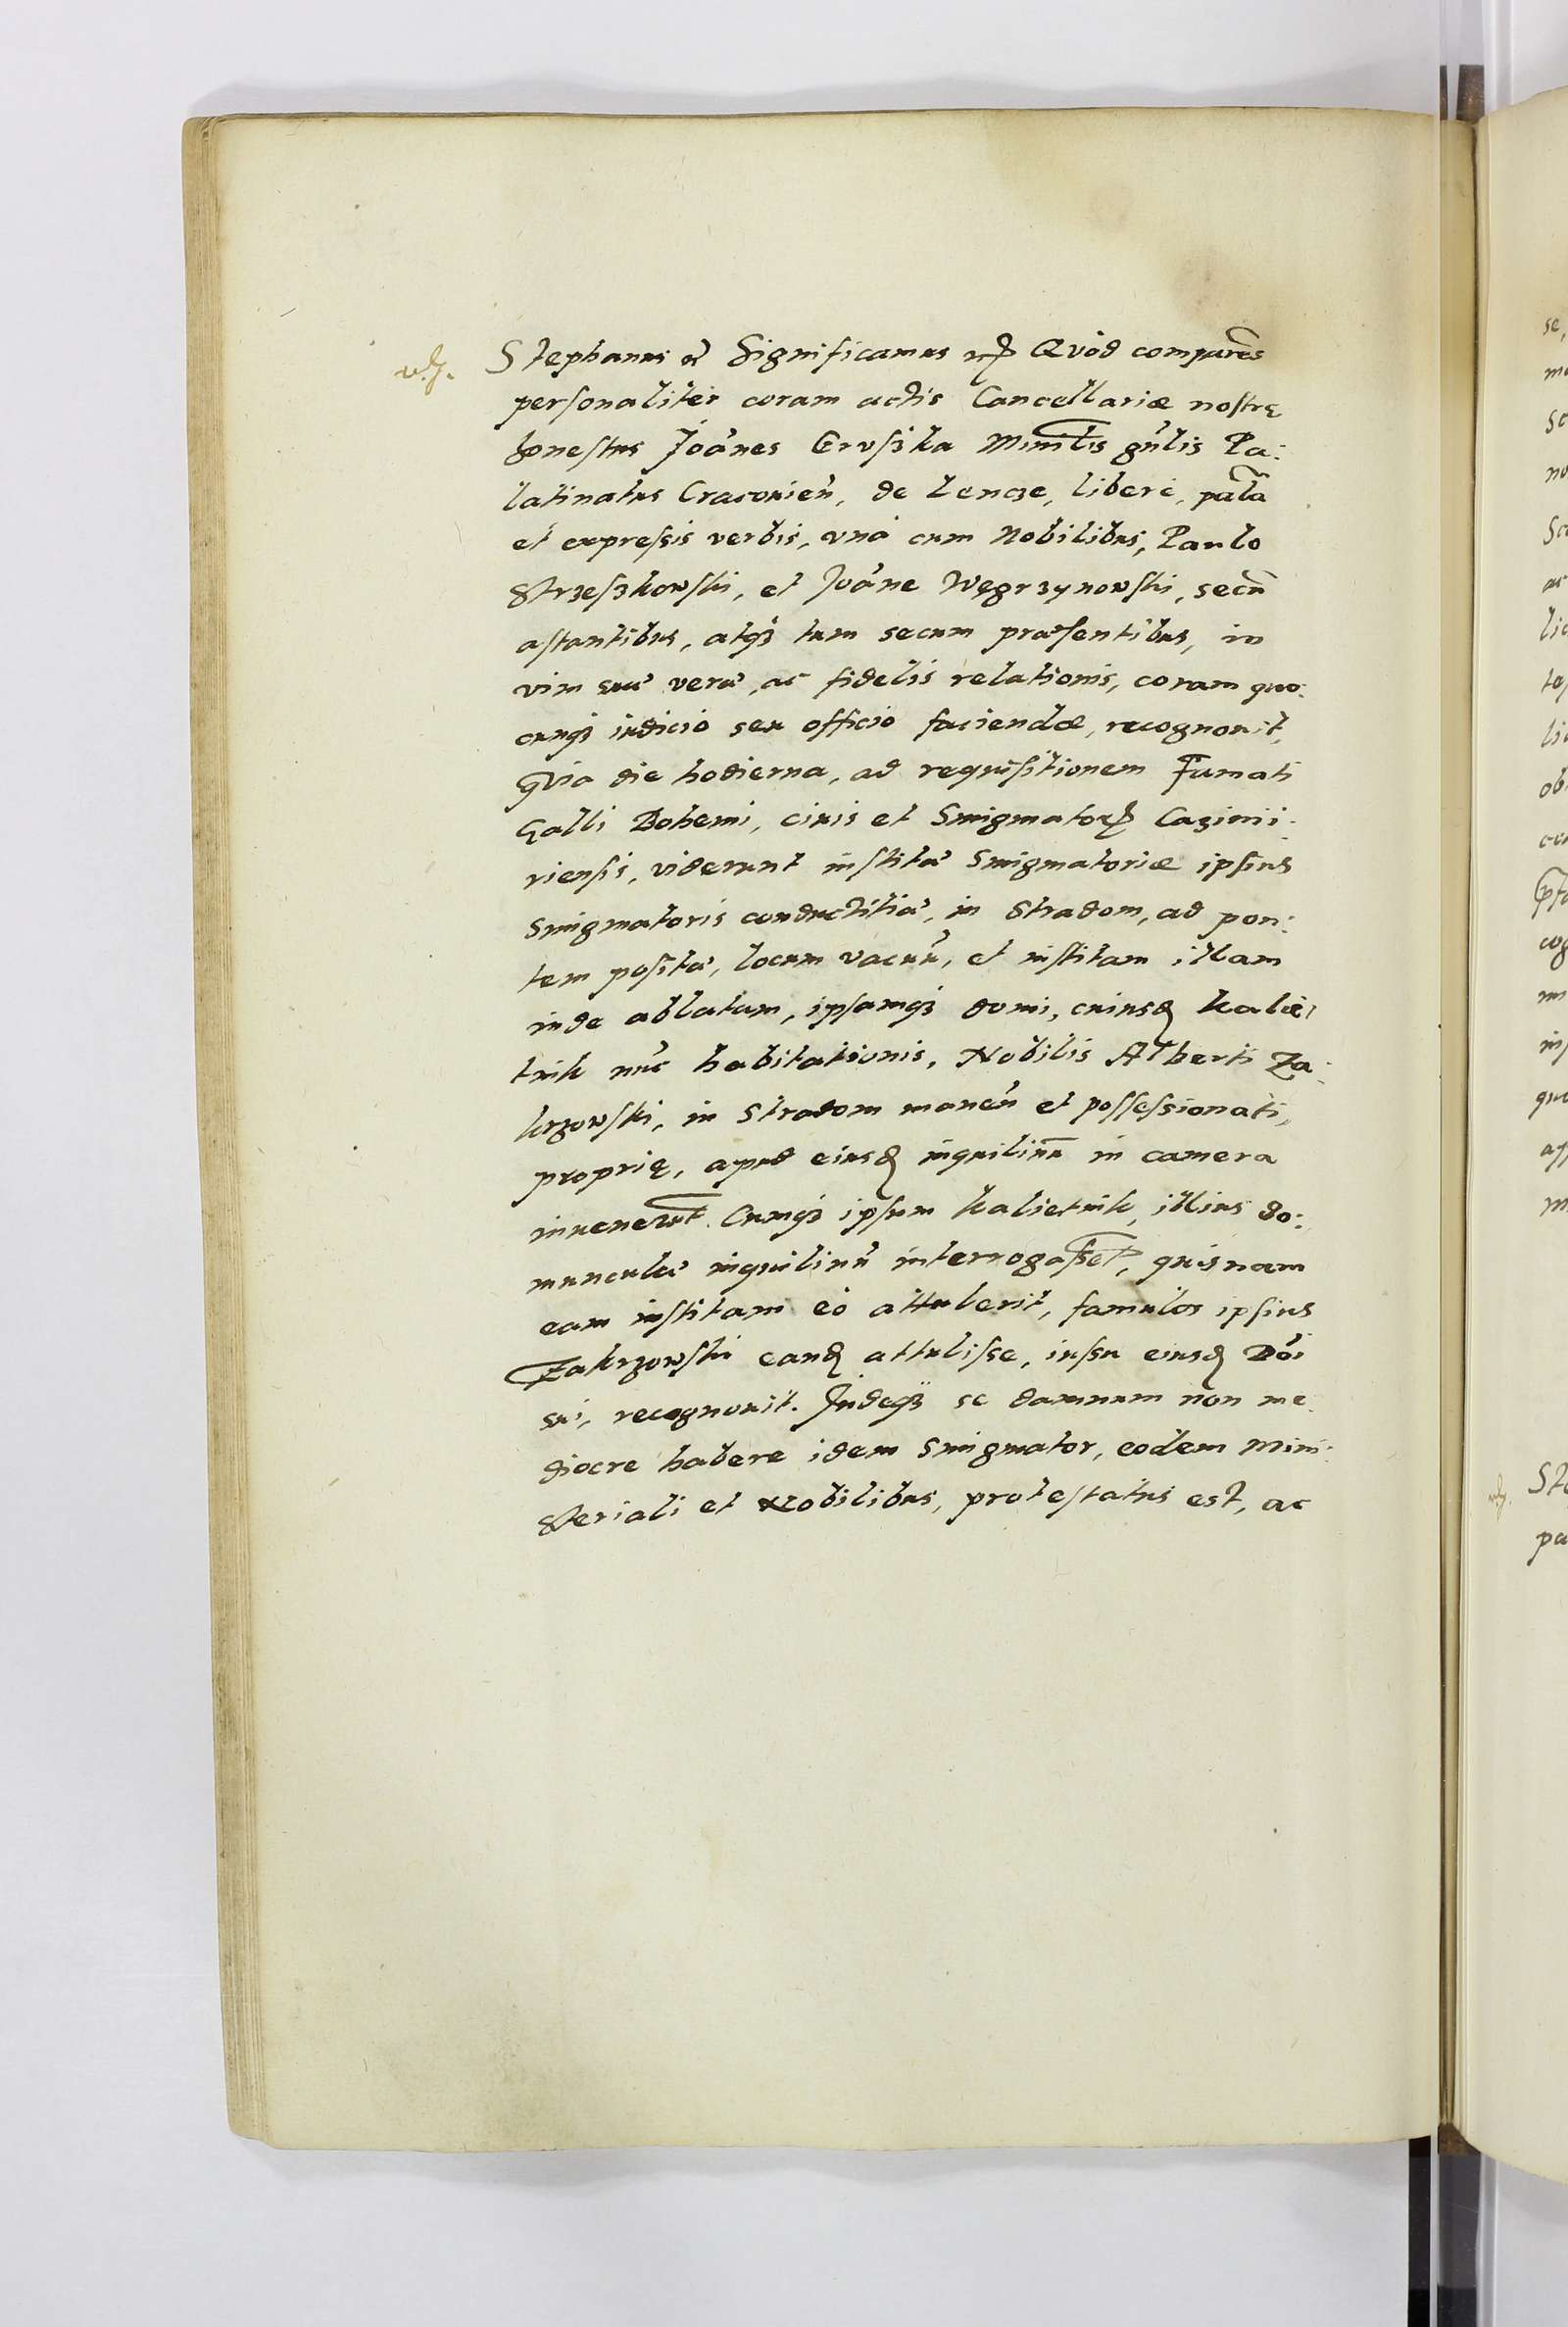 Stephanus Significamus Quòd compares
personaliter coram actis Cancellariæ nostrę
honestus Joānes Gruszka Minilis gn̄lis Pa:
latinatus Cracouien̄, de Lencze, liberè, palā
et expreſsis verbis, vnà cum Nobilibus, Paulo
Strzeſzkowſki, et Joāne Węgrzynowſki, secū
aſtantibus, atqȝ tum secum præſentibus, in
vim suæ veræ, ac fidelis relationis, coram quo:
cunqȝ iudicio seu officio faciendæ, recognouit,
Quia die hodierna, ad requiſitionem Famati
Galli Bohemi, ciuis et Smigmatoris Cazimi:
rienſis, viderunt inſtitæ Smigmatoriæ ipſius
Smigmatoris conductitiæ, in Stradom, ad pon:
tem poſitæ, locum vacuū, et inſtitam illam
inde ablatam, ipſamqȝ domi, cuiusd Kalie:
tnik nūc habitationis, Nobilis Alberti Za:
krzowſki, in Stradom manen̄ et poſſeſsionati,
proprię, apud eiusd inquilinū in camera
inuenerūt. Cumqȝ ipſum Kalietnik, illius do:
munculæ inquilinū interrogaſset, quisnam
eam inſtitam eò attulerit, famulos ipſius
Zakrzowſki eand attuliſse, iuſsu eiusd Dn̄i
sui, recognouit. Indeqȝ se damnum non me:
diocre habere idem Smigmator, eodem Mini:
steriali et Nobilibus, proteſtatus est, ac
se,
no
lic
lic
ob
cog
ap
Ste
pa